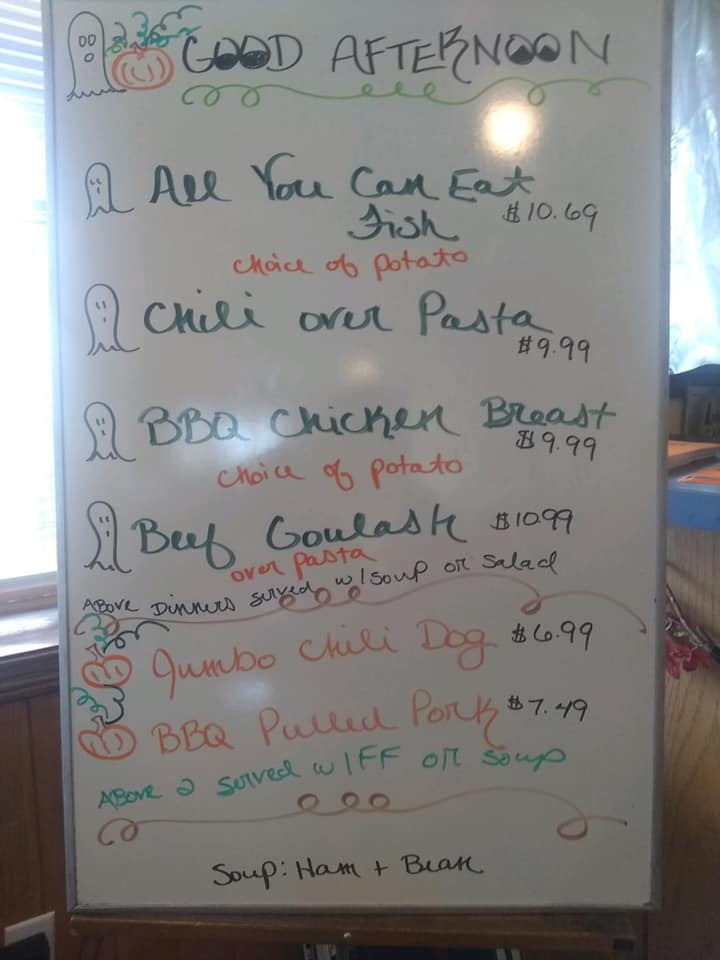 GOOD AFTERNOON
All You Can Eat
Fish $10.69
choice of potato
Chili over Pasta
$9.99
BBQ Chicken Breast
$9.99
choice of potato
Beef Goulash $10.99
over pasta
Above Dinners served w/soup or salad
Jumbo Chili Dog $6.99
BBQ Pulled Pork $7.49
Above 2 served w/FF or soup
Soup: Ham + Bean